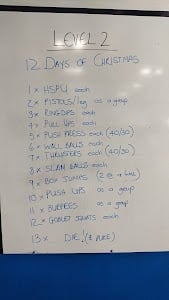 LEVEL 2
12 DAYS OF CHRISTMAS
1x HSPU each
2x PISTOLS/leg as a group
3x RING DIPS each
4x PULL UPS each
5x PUSH PRESS each (40/30)
6x WALL BALLS each
7x THRUSTERS each (40/30)
8x SLAM BALLS each
9x BOX JUMPS (2 @ a time)
10x PUSH UPS as a group
11x BURPEES as a group
12x GOBLET SQUATS each
13x DIE (& PUKE)